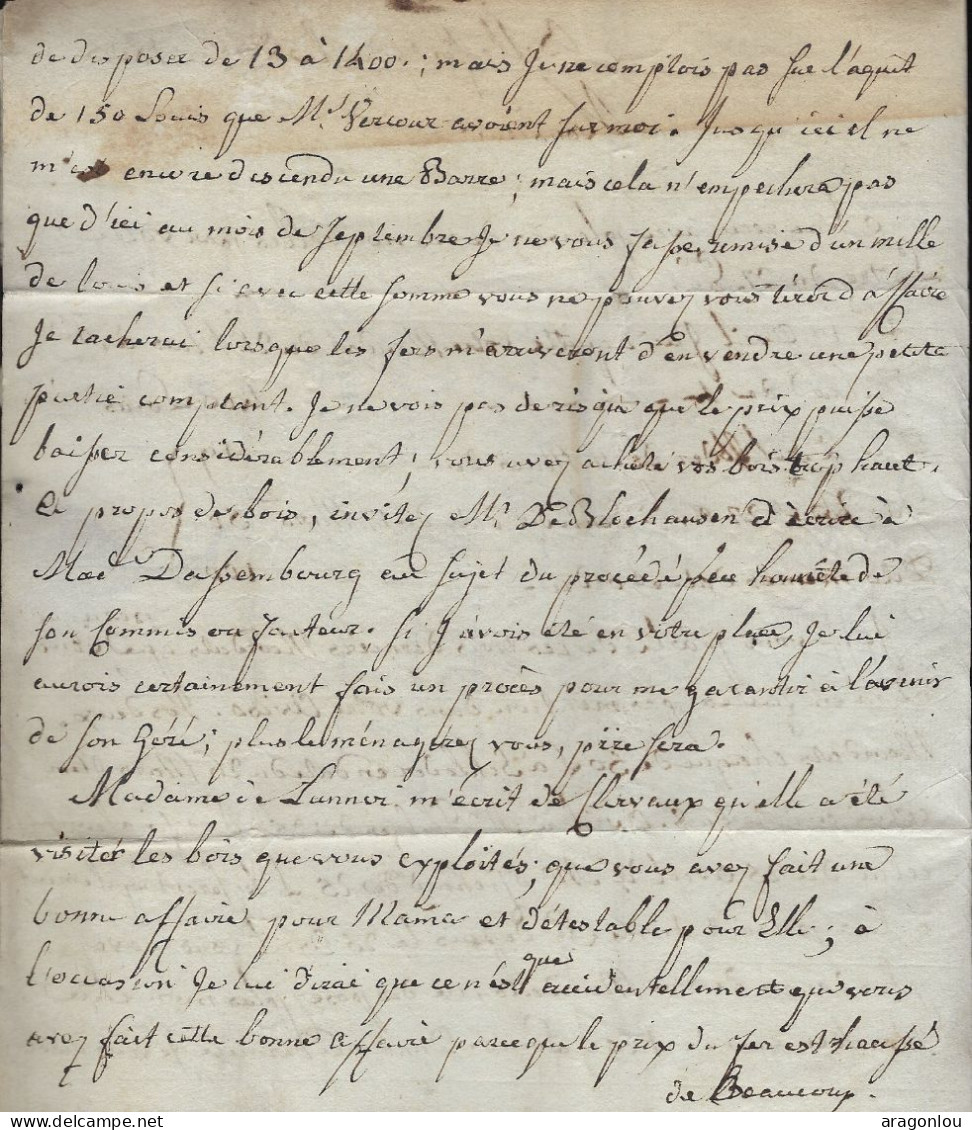 de disposer de 13 à 1400.; mais Je ne comptois pas sur l'aquit
de 150 Louis que Mrs Vercour avoient sur moi. Jusqu'ici il ne
m'est encore descendu une Barre; mais cela n'empechera pas
que d'ici au mois de Septembre Je ne vous fasse remise d'un mille
de louis et si avec cette somme vous ne pouvez vous tirer d'affaire
Je tacherai lorsque les fers m'arriveront d'en vendre une petite
partie comptant. Je ne vois pas de risque que le prix puisse
baisser considérablement; vous avez acheté vos bois trop haut.
A propos de bois, invitez Mr De Blochausen d'écrire à
Made Dassembourg au sujet du procédé peu honnête de
son Commis ou facteur. Si J'avois été en votre place, Je lui
aurois certainement fais un procès pour me garantir à l'avenir
de son Géré; plus le ménagerez vous, pire sera.
Madame de Lannoi m'écrit de Clervaux qu'elle a été
visiter les bois que vous exploités; que vous avez fait une
bonne affaire pour Mama et détestable pour Elle; à
l'occasion Je lui dirai que ce n'est que accidentellement que vous
avez fait cette bonne affaire parceque le prix du fer est haussé
de Beaucoup.
aragonlou